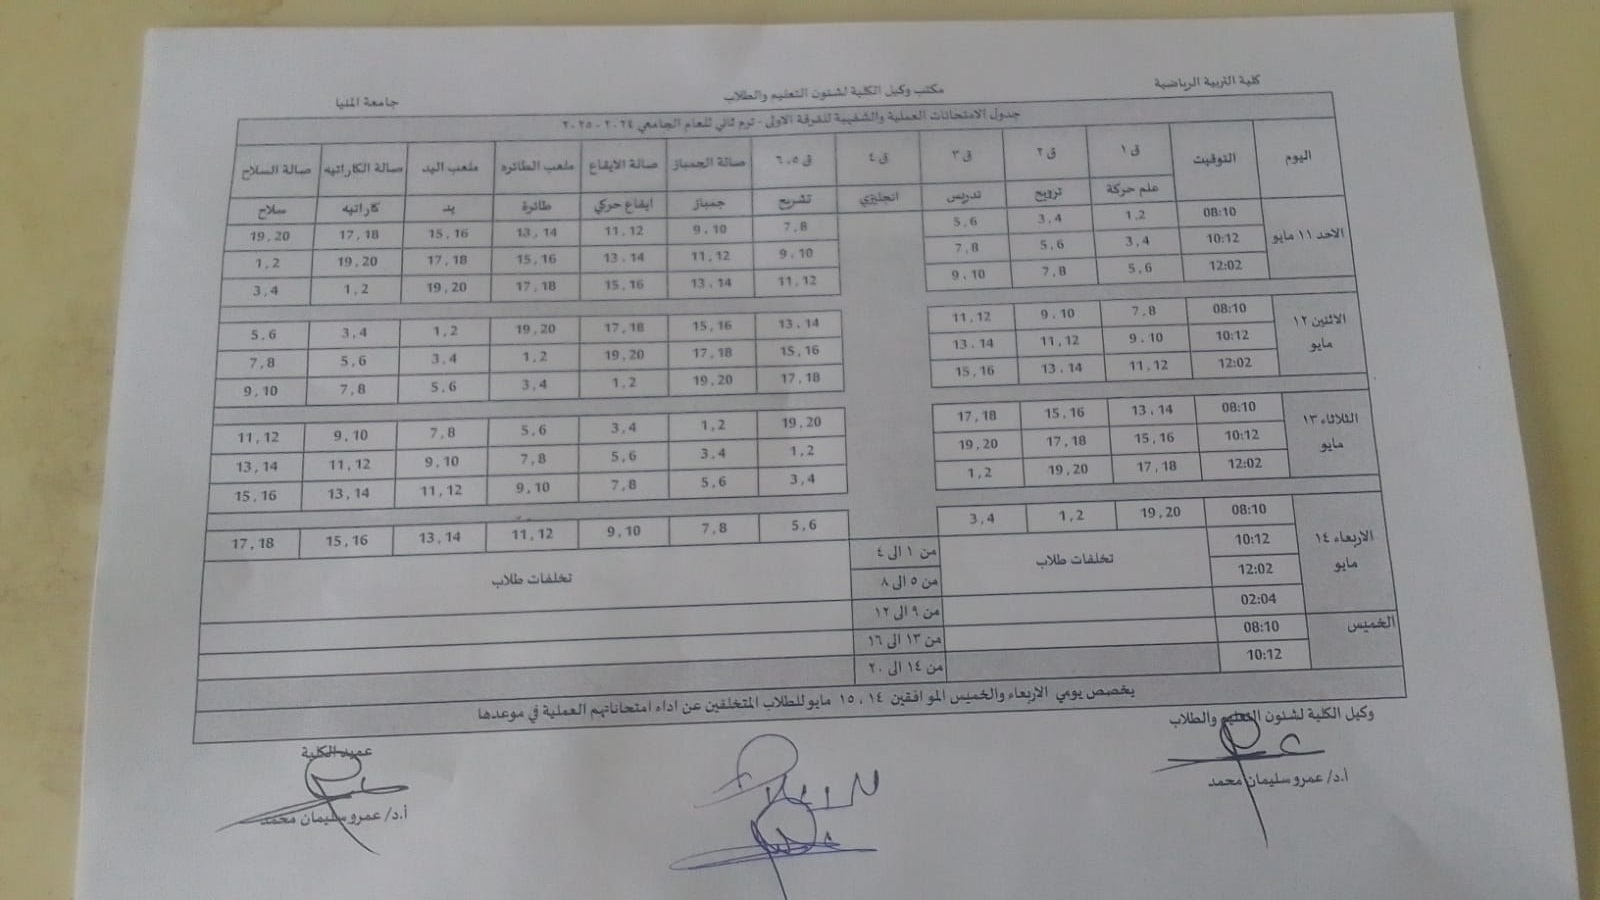 كلية التربية الرياضية مكتب وكيل الكلية لشئون التعليم والطلاب جامعة المنيا
جدول الامتحانات العملية والشفهية للفرقة الاولى - ترم ثاني للعام الجامعي ٢٠٢٤ - ٢٠٢٥
اليوم التوقيت ق ١ ق ٢ ق ٣ ق ٤ ق ٥، ٦ صالة الجمباز صالة الايقاع ملعب الطائره ملعب اليد صالة الكاراتيه صالة السلاح
علم حركة ترويح تدريس انجليزي تشريح جمباز ايقاع حركي طائرة يد كاراتيه سلاح
الاحد ١١ مايو
08:10 1,2 3,4 5,6 7,8 9,10 11,12 13,14 15,16 17,18 19,20
10:12 3,4 5,6 7,8 9,10 11,12 13,14 15,16 17,18 19,20 1,2
12:02 5,6 7,8 9,10 11,12 13,14 15,16 17,18 19,20 1,2 3,4
الاثنين ١٢ مايو
08:10 7,8 9,10 11,12 13,14 15,16 17,18 19,20 1,2 3,4 5,6
10:12 9,10 11,12 13,14 15,16 17,18 19,20 1,2 3,4 5,6 7,8
12:02 11,12 13,14 15,16 17,18 19,20 1,2 3,4 5,6 7,8 9,10
الثلاثاء ١٣ مايو
08:10 13,14 15,16 17,18 19,20 1,2 3,4 5,6 7,8 9,10 11,12
10:12 15,16 17,18 19,20 1,2 3,4 5,6 7,8 9,10 11,12 13,14
12:02 17,18 19,20 1,2 3,4 5,6 7,8 9,10 11,12 13,14 15,16
الاربعاء ١٤ مايو
08:10 19,20 1,2 3,4 5,6 7,8 9,10 11,12 13,14 15,16 17,18
10:12 تخلفات طلاب من ١ الى ٤ تخلفات طلاب
12:02 من ٥ الى ٨
02:04 من ٩ الى ١٢
الخميس
08:10 من ١٣ الى ١٦
10:12 من ١٤ الى ٢٠
يخصص يومي الاربعاء والخميس الموافقين ١٤ ، ١٥ مايو للطلاب المتخلفين عن اداء امتحاناتهم العملية في موعدها
وكيل الكلية لشئون التعليم والطلاب
عميد الكلية
أ.د/ عمرو سليمان محمد
أ.د/ عمرو سليمان محمد